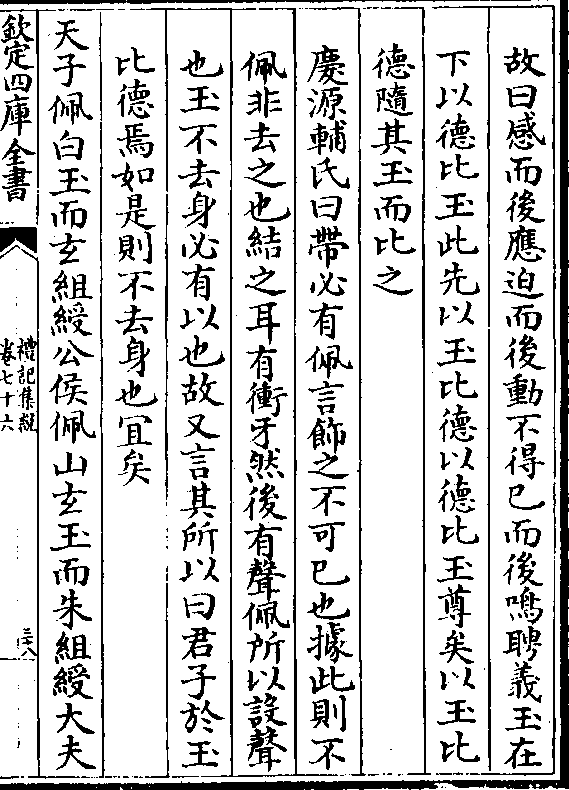 故曰感而後應迫而後動不得已而後鳴聘義玉在
下以德比玉此先以玉比德以德比玉尊矣以玉比
德隨其玉而比之
慶源輔氏曰帶必有佩言飾之不可已也據此則不
佩非去之也結之耳有衝牙然後有聲佩所以設聲
也玉不去身必有以也故又言其所以曰君子於玉
比德焉如是則不去身也宜矣
天子佩白玉而玄組綬公侯佩山玄玉而朱組綬大夫
欽定四庫全書
禮記集說
卷七十六
三十八